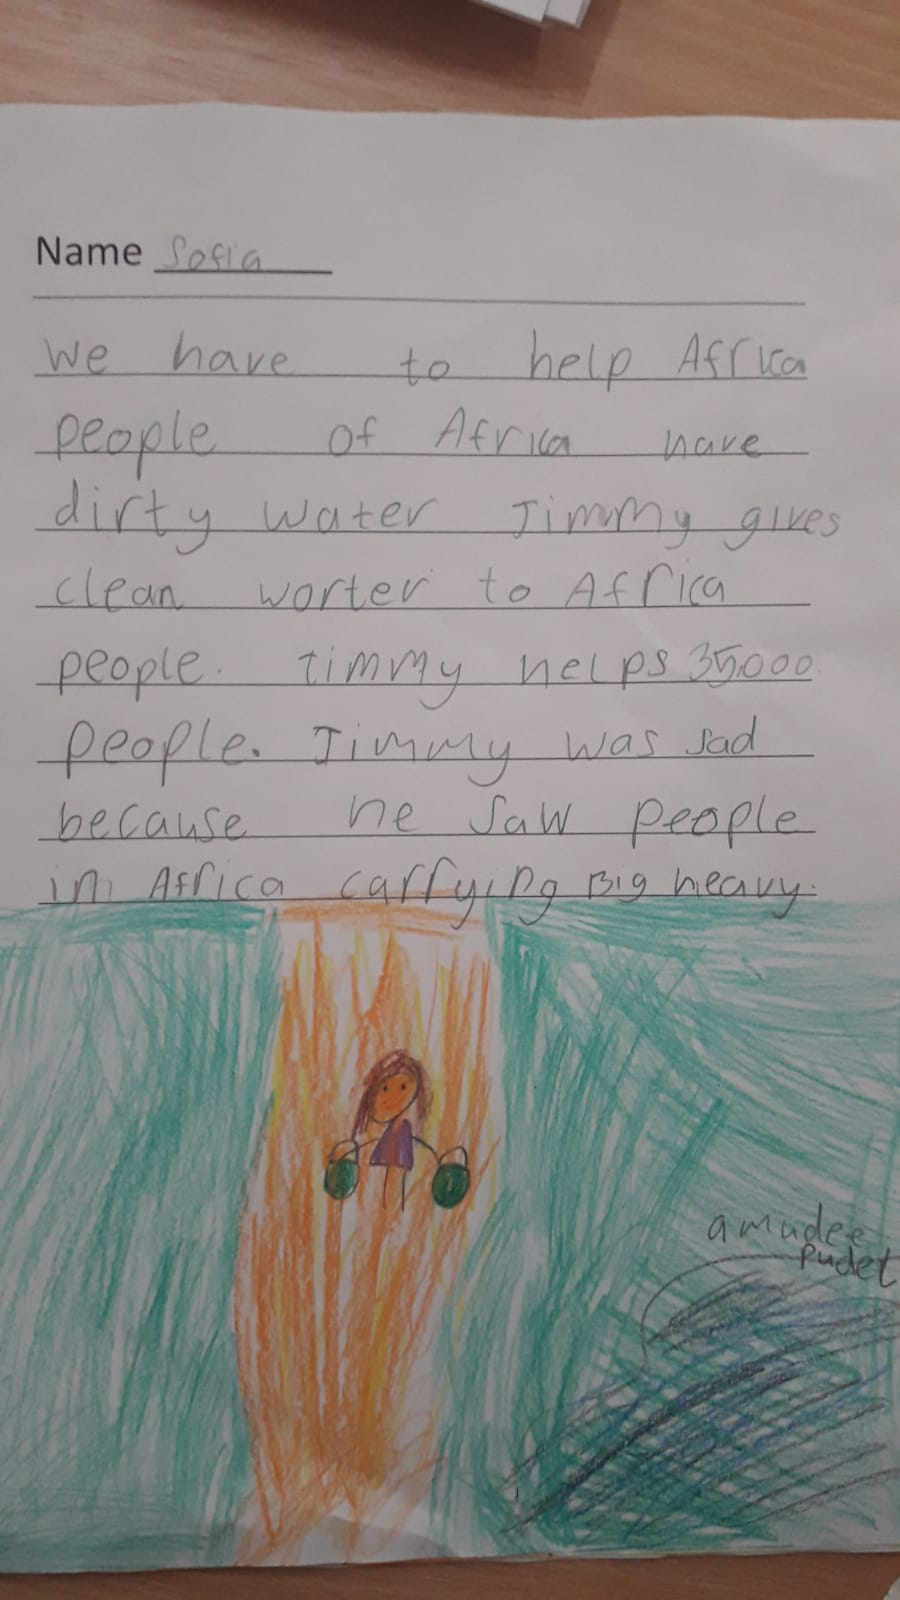 Name Sofia
We have to help Africa
people of Africa have
dirty water Jimmy gives
clean worter to Africa
people. timmy helps 35,000
people. Jimmy was sad
because he saw people
in Africa carrying Big heavy.
a mudee
pudet